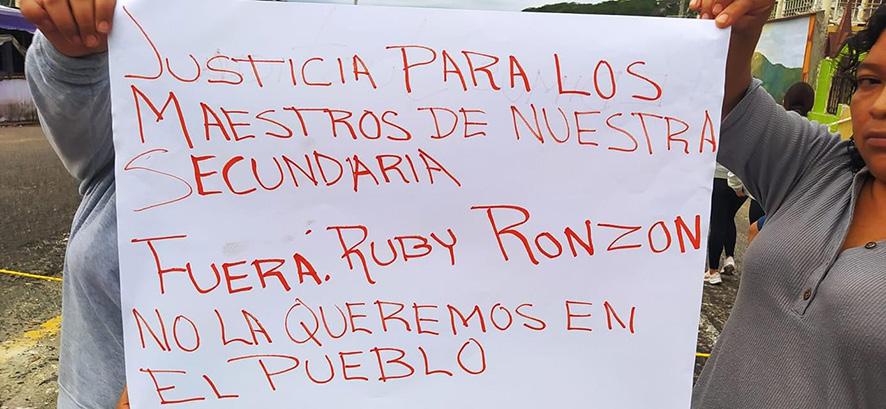 JUSTICIA PARA LOS
MAESTROS DE NUESTRA
SECUNDARIA
FUERA. RUBY RONZON
NO LA QUEREMOS EN
EL PUEBLO